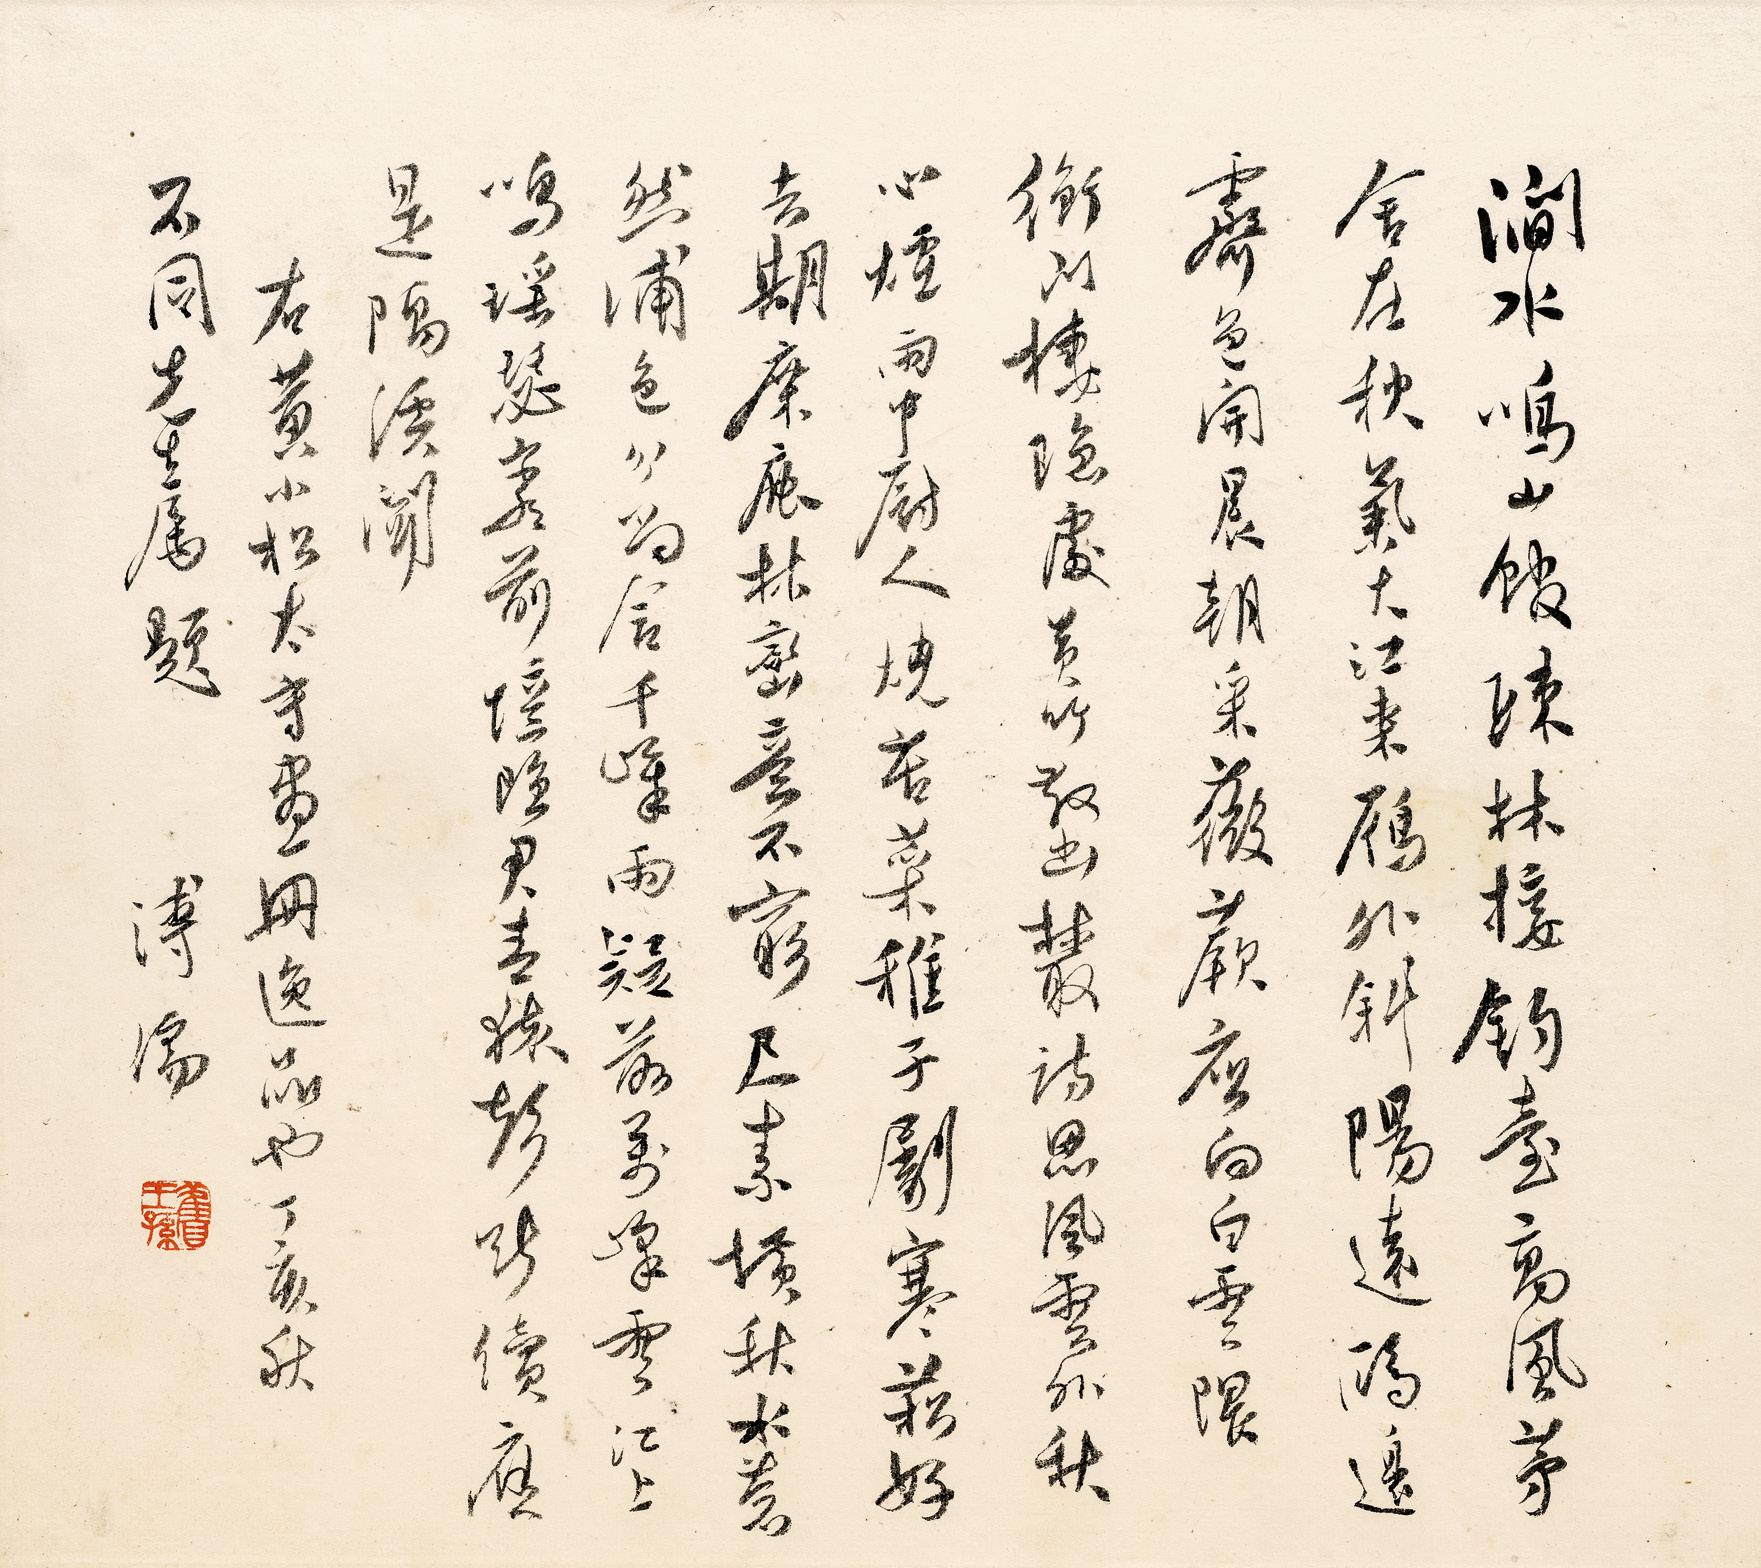 澗水鳴山餘疎林接釣臺高風茅
舍在秋氣大江來雁外斜陽遠鴻邊
霽色開晨朝采薇蕨應向白雲隈
衡門棲隱處黃竹散出叢詩思風雲外秋
心煙雨中厨人燒苦菜稚子劚寒菘好
去期麋鹿林巒意不窮 尺素橫秋水蒼
然浦色分尚含千嶂雨疑落萬峰雲江上
鳴瑤瑟窗前憶隱君青猿聲斷續應
是隔溪聞
右黃小松太守畫冊逸品也丁亥秋
不同先生屬題 溥儒
舊王孫